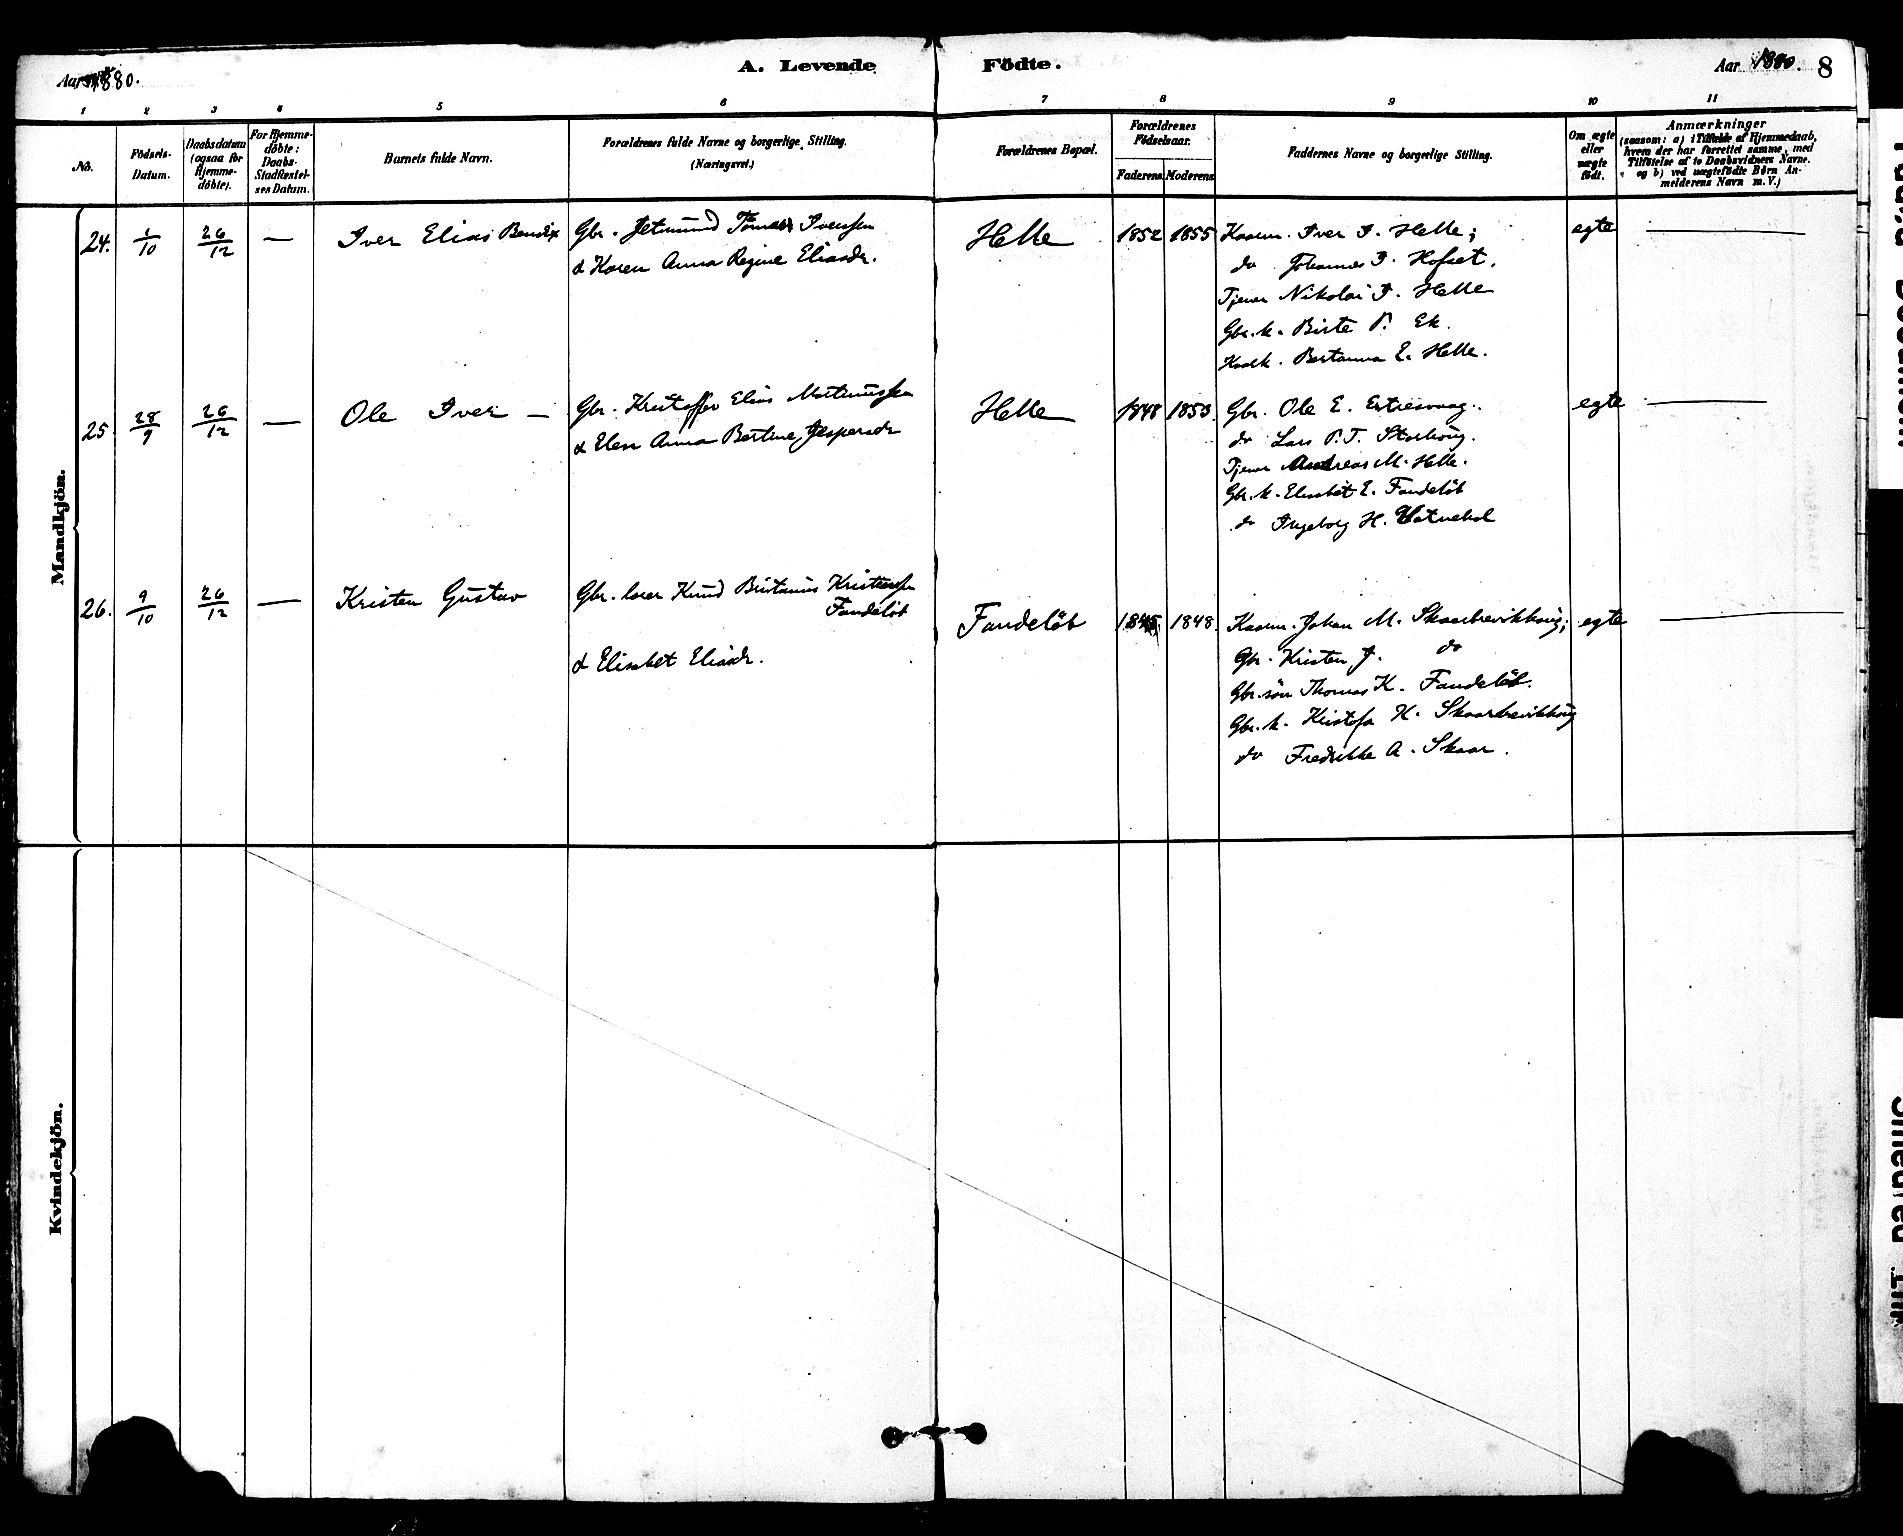 Aar 1880.
A. Levende Födte.
Aar 1880. 8
1 2 3 4 5 6 7 8 9 10 11
No.
Födsels-Datum.
Daabsdatum (ogsaa for Hjemme-döbte).
For Hjemme-döbte: Daabs-Stadfæstel-ses Datum.
Barnets fulde Navn.
Forældrenes fulde Navne og borgerlige Stilling. (Næringsvei.)
Forældrenes Bopæl.
Forældrenes Födselsaar.
Faderens. Moderens.
Faddernes Navne og borgerlige Stilling.
Om ægte eller uægte födt.
Anmærkninger
(saasom: a) i Tilfælde af Hjemmedaab,
hvem der har forrettet samme, med
Tilföielse af to Daabsvidners Navne.
og b) ved uægtefödte Börn An-
melderens Navn m. V.)
Mandkjön.
24. 1/10 26/12 — Iver Elias Bendix
Gbr. Jetmund Tomas Iversen
& Karen Anna Regine Eliasdr.
Helle 1852 1855
Kaarm. Iver J. Helle;
do Johannes I. Hofset.
Tjener Nikolai I. Helle
Gbr.k. Birte P. Ek.
Kaark. Bertanna E. Helle.
egte
25. 28/9 26/12 — Ole Iver —
Gbr. Kristoffer Elias Martinussen
& Elen Anna Bertine Jespersdr
Helle 1848 1853.
Gbr. Ole E. Ertresvaag.
do Lars P. T. Storhoug.
Tjener Andreas M. Helle.
Gbr.k. Elisabet E. Fandelöb
do Ingeborg H.
egte
26. 9/10 26/12 — Kristen Gustav
Gbr. Knud Kristensen
Fandelöb
& Elisabet Eliasdr.
Fandelöb 1845 1848.
Kaarm. Johan M. Skaarbrevikhoug;
Gbr. Kristen J. do
Gbr.sön Thomas K. Fandelöb.
Gbr.k. Kristofa H. Skaarbrevikhoug
do Fredrikke A. Skaar.
egte
Kvindekjön.